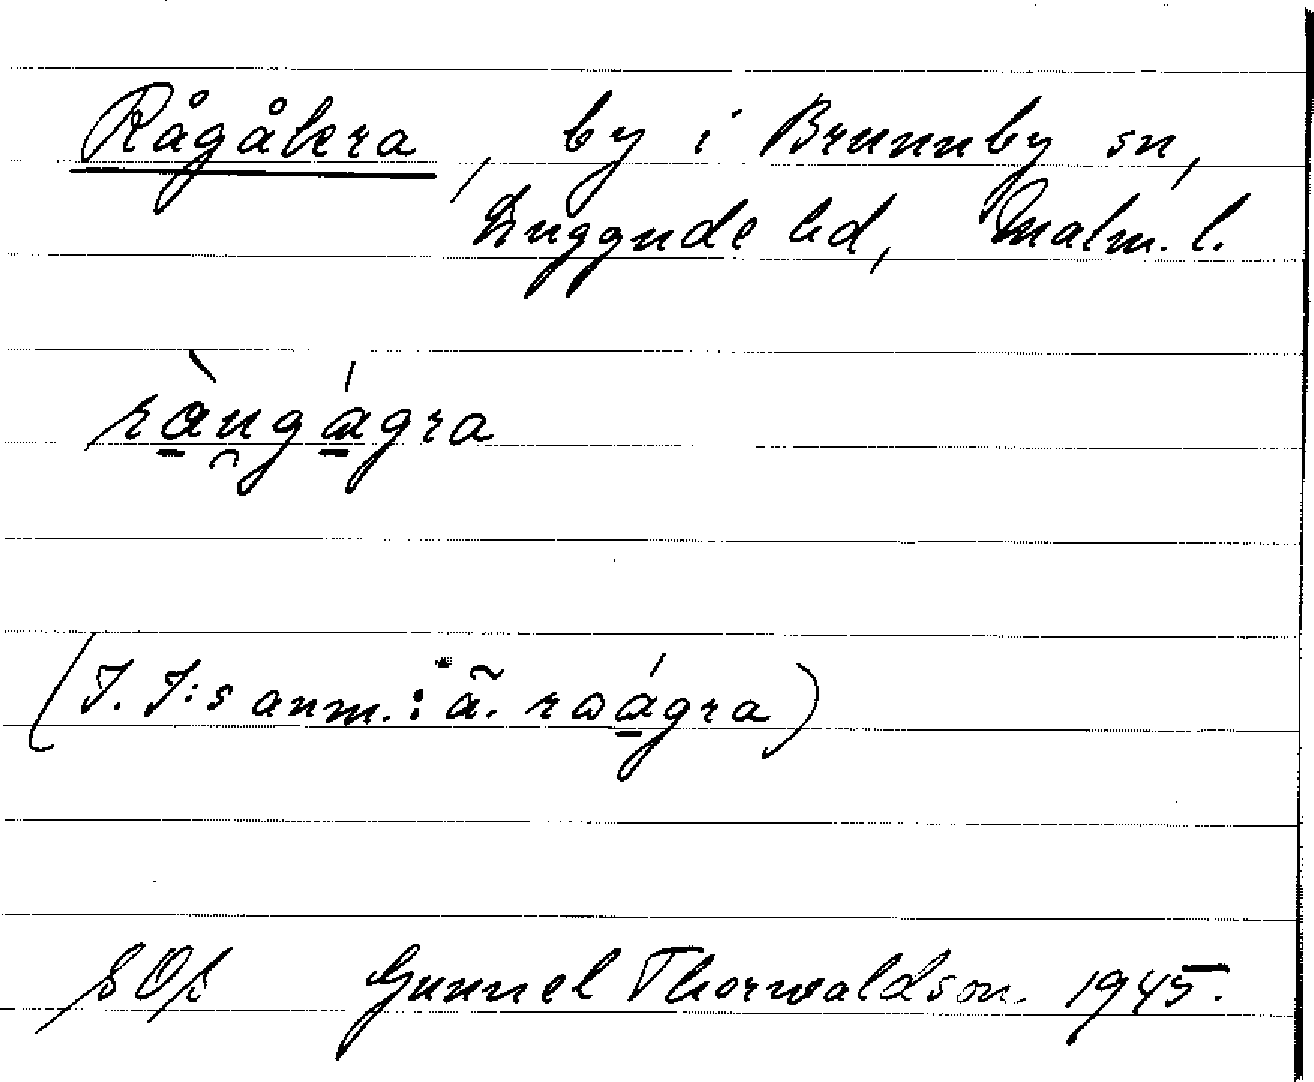 Rågåkra, by i Brunnby sn,
Luggude hd, Malm. l.
ràu̯gágra
(I. I:s anm.: ä. råágra)
SOS Gunnel Thorwaldson. 1945.